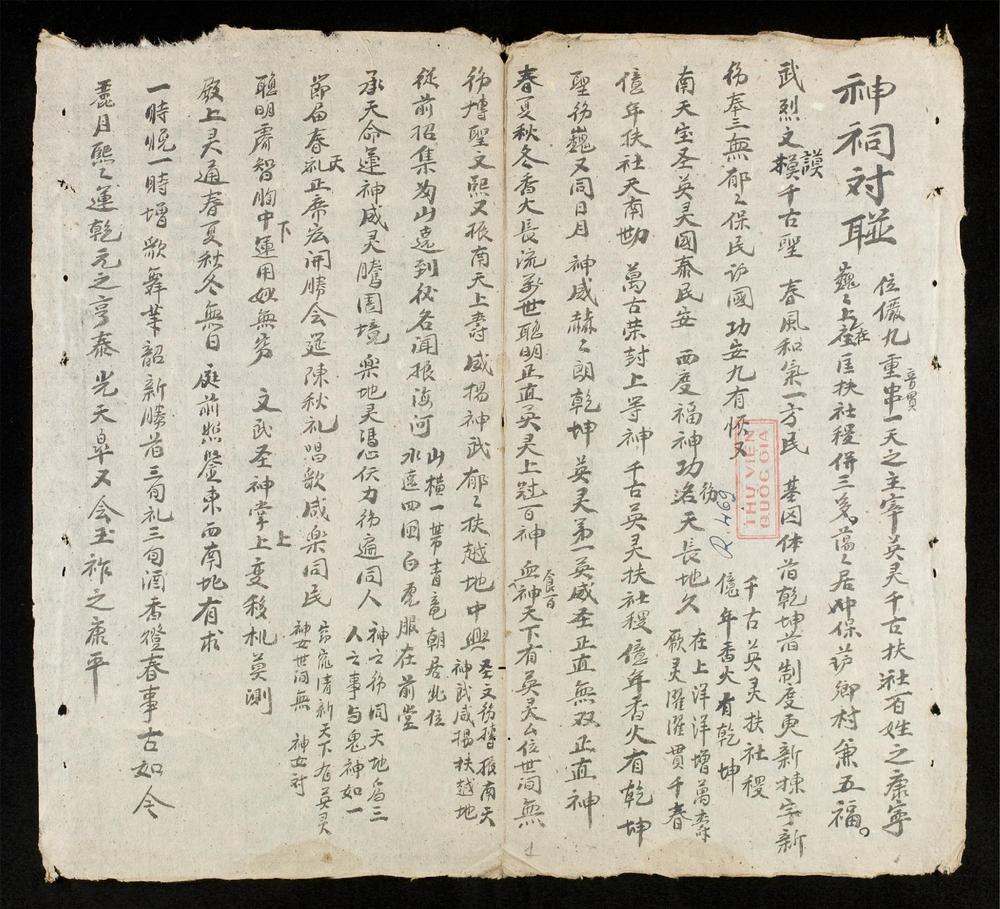 神祠对聯
位儼九重串一天之主宰英灵千古扶社百姓之康寧
音貫
巍〻上在匡扶社稷併三多蕩〻居冲保护鄉村兼五福
武烈文謨千古聖 春風和氣一方民 基因体旧乾坤旧制度更新棟宇新
奉三無郁〻保民护國功安九有怀又
千古英灵扶社稷
億年香火有乾坤
南天宝圣英灵國泰民安 西度福神功德天長地久
在上洋洋增萬寿
厥灵濯濯貫千春
億年扶社天南勐 萬古荣封上等神 千古英灵扶社稷億年香火有乾坤
聖德巍又同日月 神威赫〻朗乾坤 英灵第一英威圣正直無双正直神
春夏秋冬香火長流万世聰明正直英灵上冠百神 血神天下有英灵公位世间無
食百
德博聖文熙又振南天上壽威揚神武郁〻扶越地中興
圣文德博振南天
神武威揚扶越地
從前招集为山遠到後名闻振海河
山橫一帶青竜朝居北位
水遶四围白虎服在前堂
承天命運神威灵騰国境 楽地灵馮心伏力德遍同人
神之德同天地為三
人之事与鬼神如一
節届春天礼正席宏開勝会筵陳秋礼唱歌咸楽同民
宫寵清新天下有英灵
神女世间無 神女对
聰明睿智胸中運用妙無穷 文武圣神掌上变移机莫測
下
上
殿上灵通春夏秋冬無日 庭前照鑒東西南北有求
一時晚一時增歌舞業韶新勝旧三旬礼三旬酒香橙春事古如今
麗月熙〻運乾元之亨泰 光天皋又会玉祚之康平
THƯ VIỆN
QUỐC GIA
R.469